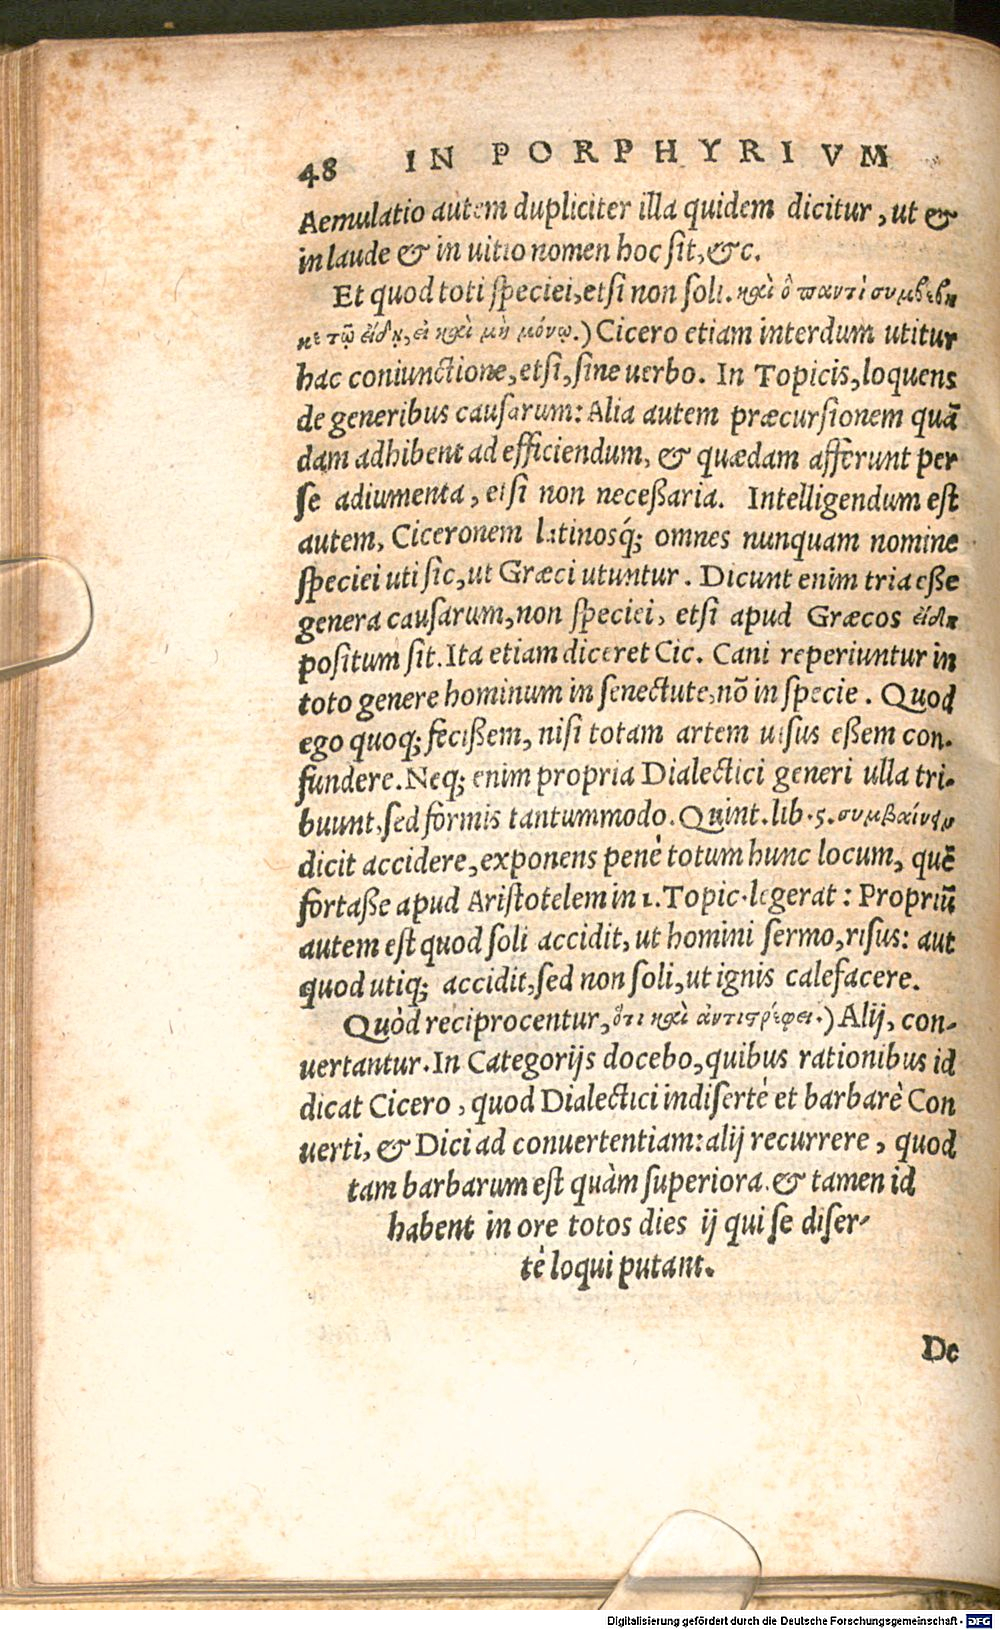 48 IN PORPHYRIVM
Aemulatio autem dupliciter illa quidem dicitur, ut &
in laude & in uitio nomen hoc sit, &c.
Et quod toti speciei, etsi non soli. καὶ ὃ παντὶ συμβέβη
κε τῷ εἴδει, εἰ καὶ μὴ μόνῳ.) Cicero etiam interdum utitur
hac coniunctione, etsi, sine uerbo. In Topicis, loquens
de generibus causarum: Alia autem præcursionem quā
dam adhibent ad efficiendum, & quædam afferunt per
se adiumenta, etsi non neceßaria. Intelligendum est
autem, Ciceronem latinosq́; omnes nunquam nomine
speciei uti sic, ut Græci utuntur. Dicunt enim tria eße
genera causarum, non speciei, etsi apud Græcos εἴδη
positum sit. Ita etiam diceret Cic. Cani reperiuntur in
toto genere hominum in senectute, nō in specie. Quod
ego quoq; fecißem, nisi totam artem uisus eßem con-
fundere. Neq; enim propria Dialectici generi ulla tri-
buunt, sed formis tantummodo. Quint. lib. 5. συμβαίνειν
dicit accidere, exponens penè totum hunc locum, quē
fortaße apud Aristotelem in 1. Topic. legerat: Propriū
autem est quod soli accidit, ut homini sermo, risus: aut
quod utiq; accidit, sed non soli, ut ignis calefacere.
Quòd reciprocentur, ὅτι καὶ ἀντιστρέφει.) Alij, con-
uertantur. In Categorijs docebo, quibus rationibus id
dicat Cicero, quod Dialectici indisertè et barbarè Con
uerti, & Dici ad conuertentiam: alij recurrere, quod
tam barbarum est quàm superiora. & tamen id
habent in ore totos dies ij qui se diser-
tè loqui putant.
De
Digitalisierung gefördert durch die Deutsche Forschungsgemeinschaft - DFG